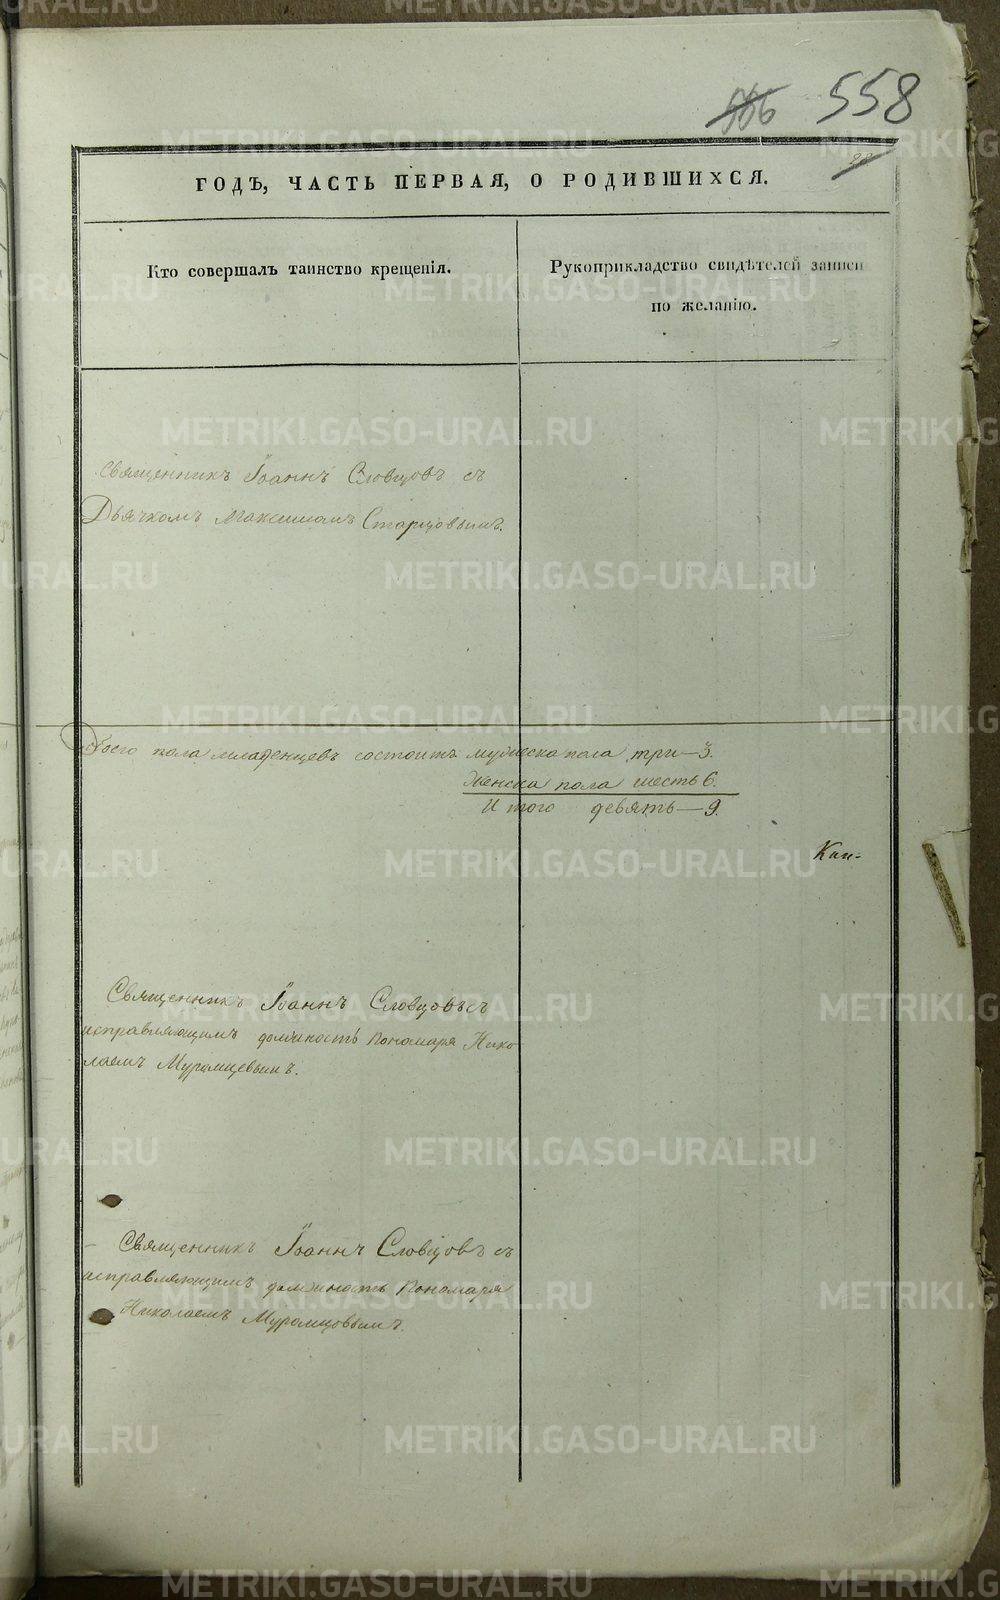 558
ГОДЪ, ЧАСТЬ ПЕРВАЯ, О РОДИВШИХСЯ.
Кто совершалъ таинство крещенія.
Рукоприкладство свидѣтелей записи
по желанію.
Священникъ Іоаннъ Словцовъ съ
Дьячкомъ Максимомъ Старцовымъ.
Обоего пола младенцевъ состоитъ мужеска пола три—3.
Женска пола шесть 6.
Итого девять—9.
Священникъ Іоаннъ Словцовъ съ
исправляющимъ должность Пономаря Нико
лаемъ Муромцевымъ.
Священникъ Іоаннъ Словцовъ съ
исправляющимъ должность Пономаря
Николаемъ Муромцовымъ.
METRIKI.GASO-URAL.RU